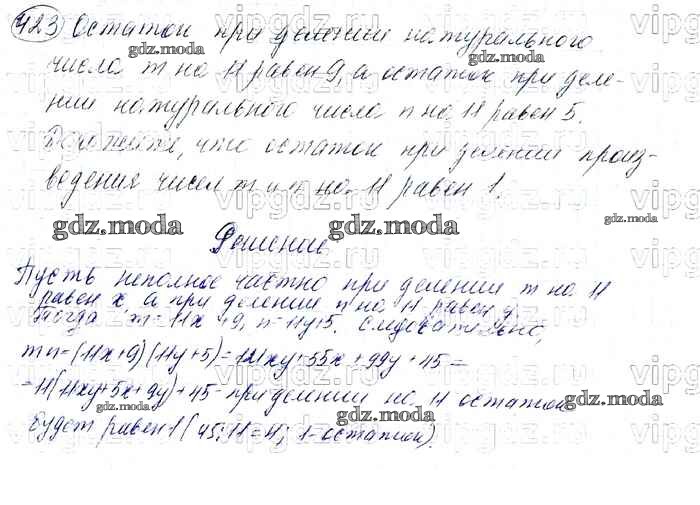 423 Остаток при делении натурального
числа m на 11 равен 9, а остаток при деле-
нии натурального числа n на 11 равен 5.
Докажите, что остаток при делении произ-
ведения чисел m и n на 11 равен 1.
Решение
Пусть неполное частно при делении m на 11
равен x, а при делении n на 11 равен y.
Тогда m = 11x + 9, n = 11y+5. Следовательно,
mn = (11x+9)(11y+5) = 121xy + 55x + 99y + 45 =
= 11(11xy+5x+9y)+45 - при делении на 11 остаток
будет равен 1 (45:11=4; 1-остаток).
gdz.moda
vipgdz.ru